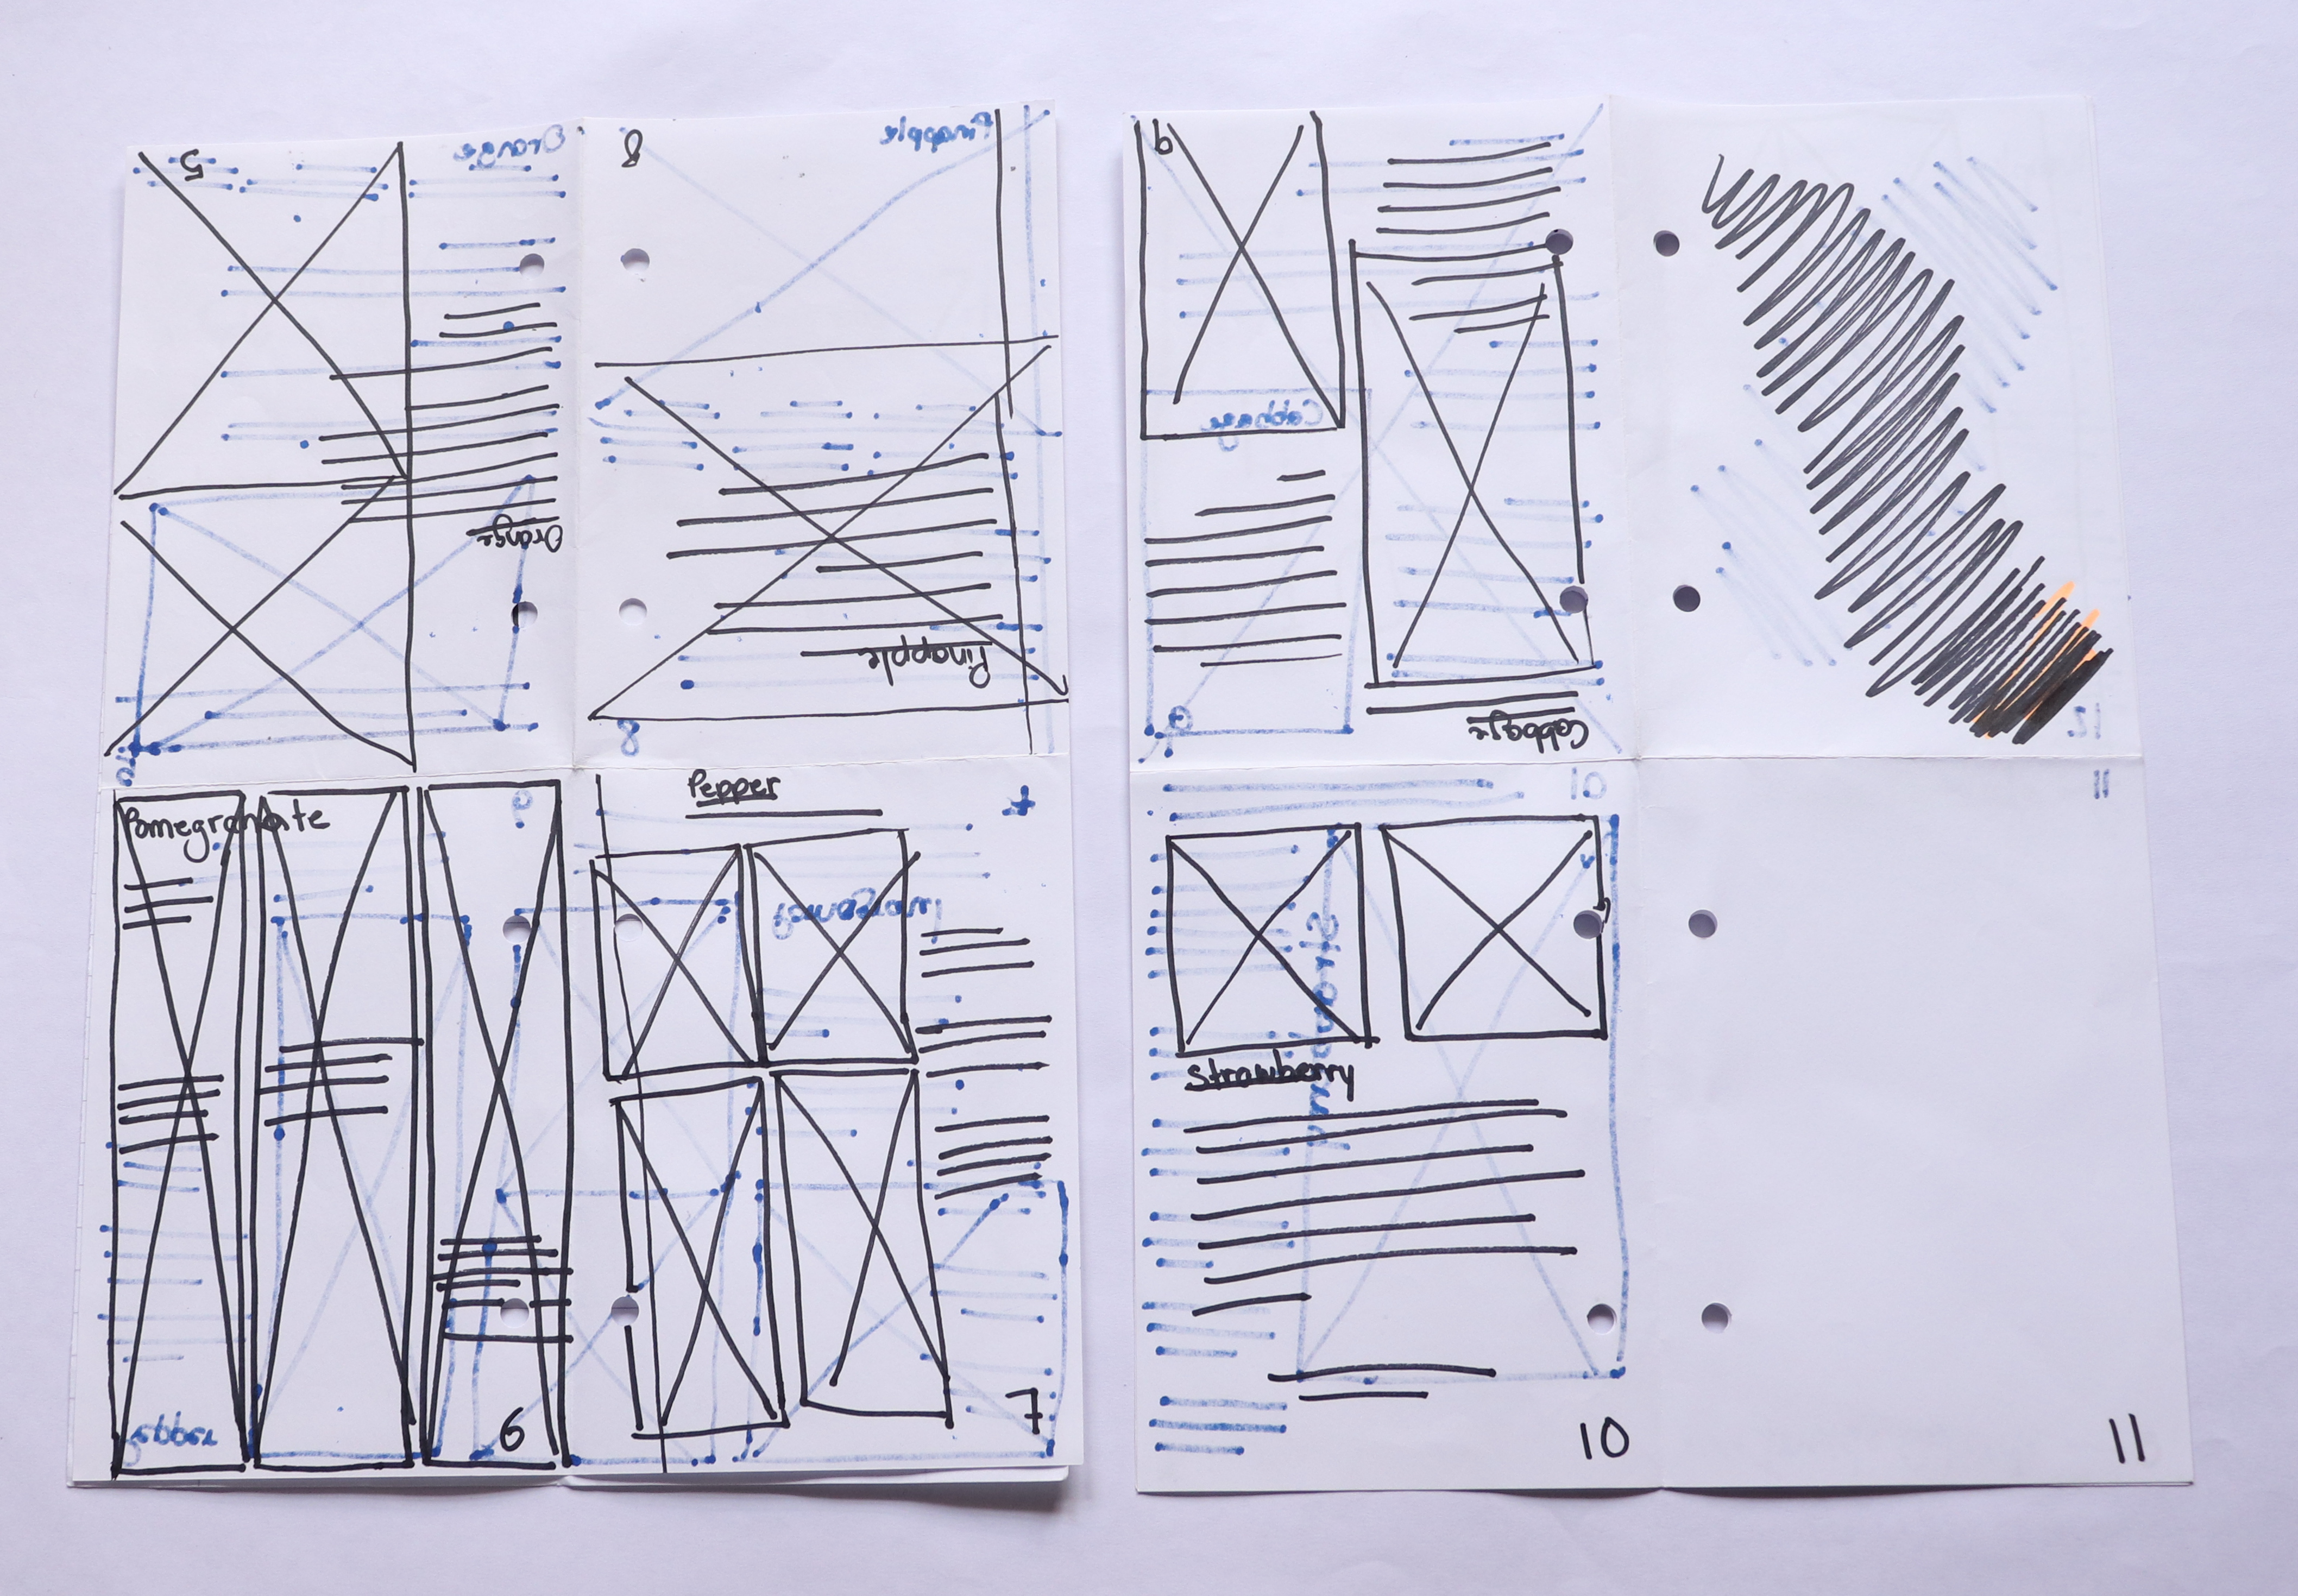 5
Orange
Orange
8
Pinapple
Pinapple
8
Pomegranate
6
Pepper
7
9
Cabbage
Cabbage
9
12
10
Strawberry
10
11
11